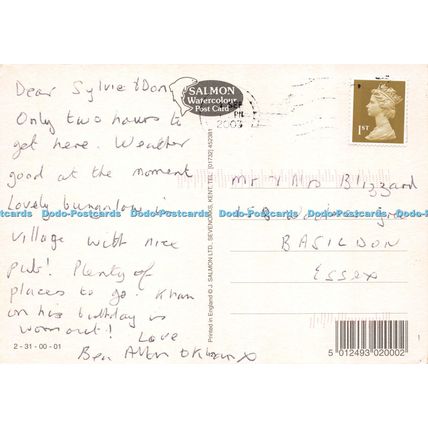 Dear Sylvie & Don
Only two hours to
get here. Weather
good at the moment
Lovely bungalow in
village with nice
pub! Plenty of
places to go. Khan
on his birthday is
worn out! Love
Ben
SALMON
Watercolour
Post Card
2003
1ST
Mr Mrs Blizzard
BASILDON
ESSEX
Postcards Dodo-Postcards Dodo-Postcards Dodo-Postcards Dodo-Postcards Dodo-Postcards
Printed in England © J. SALMON LTD., SEVENOAKS, KENT, TEL: (01732) 452381
2-31-00-01
5 012493 020002